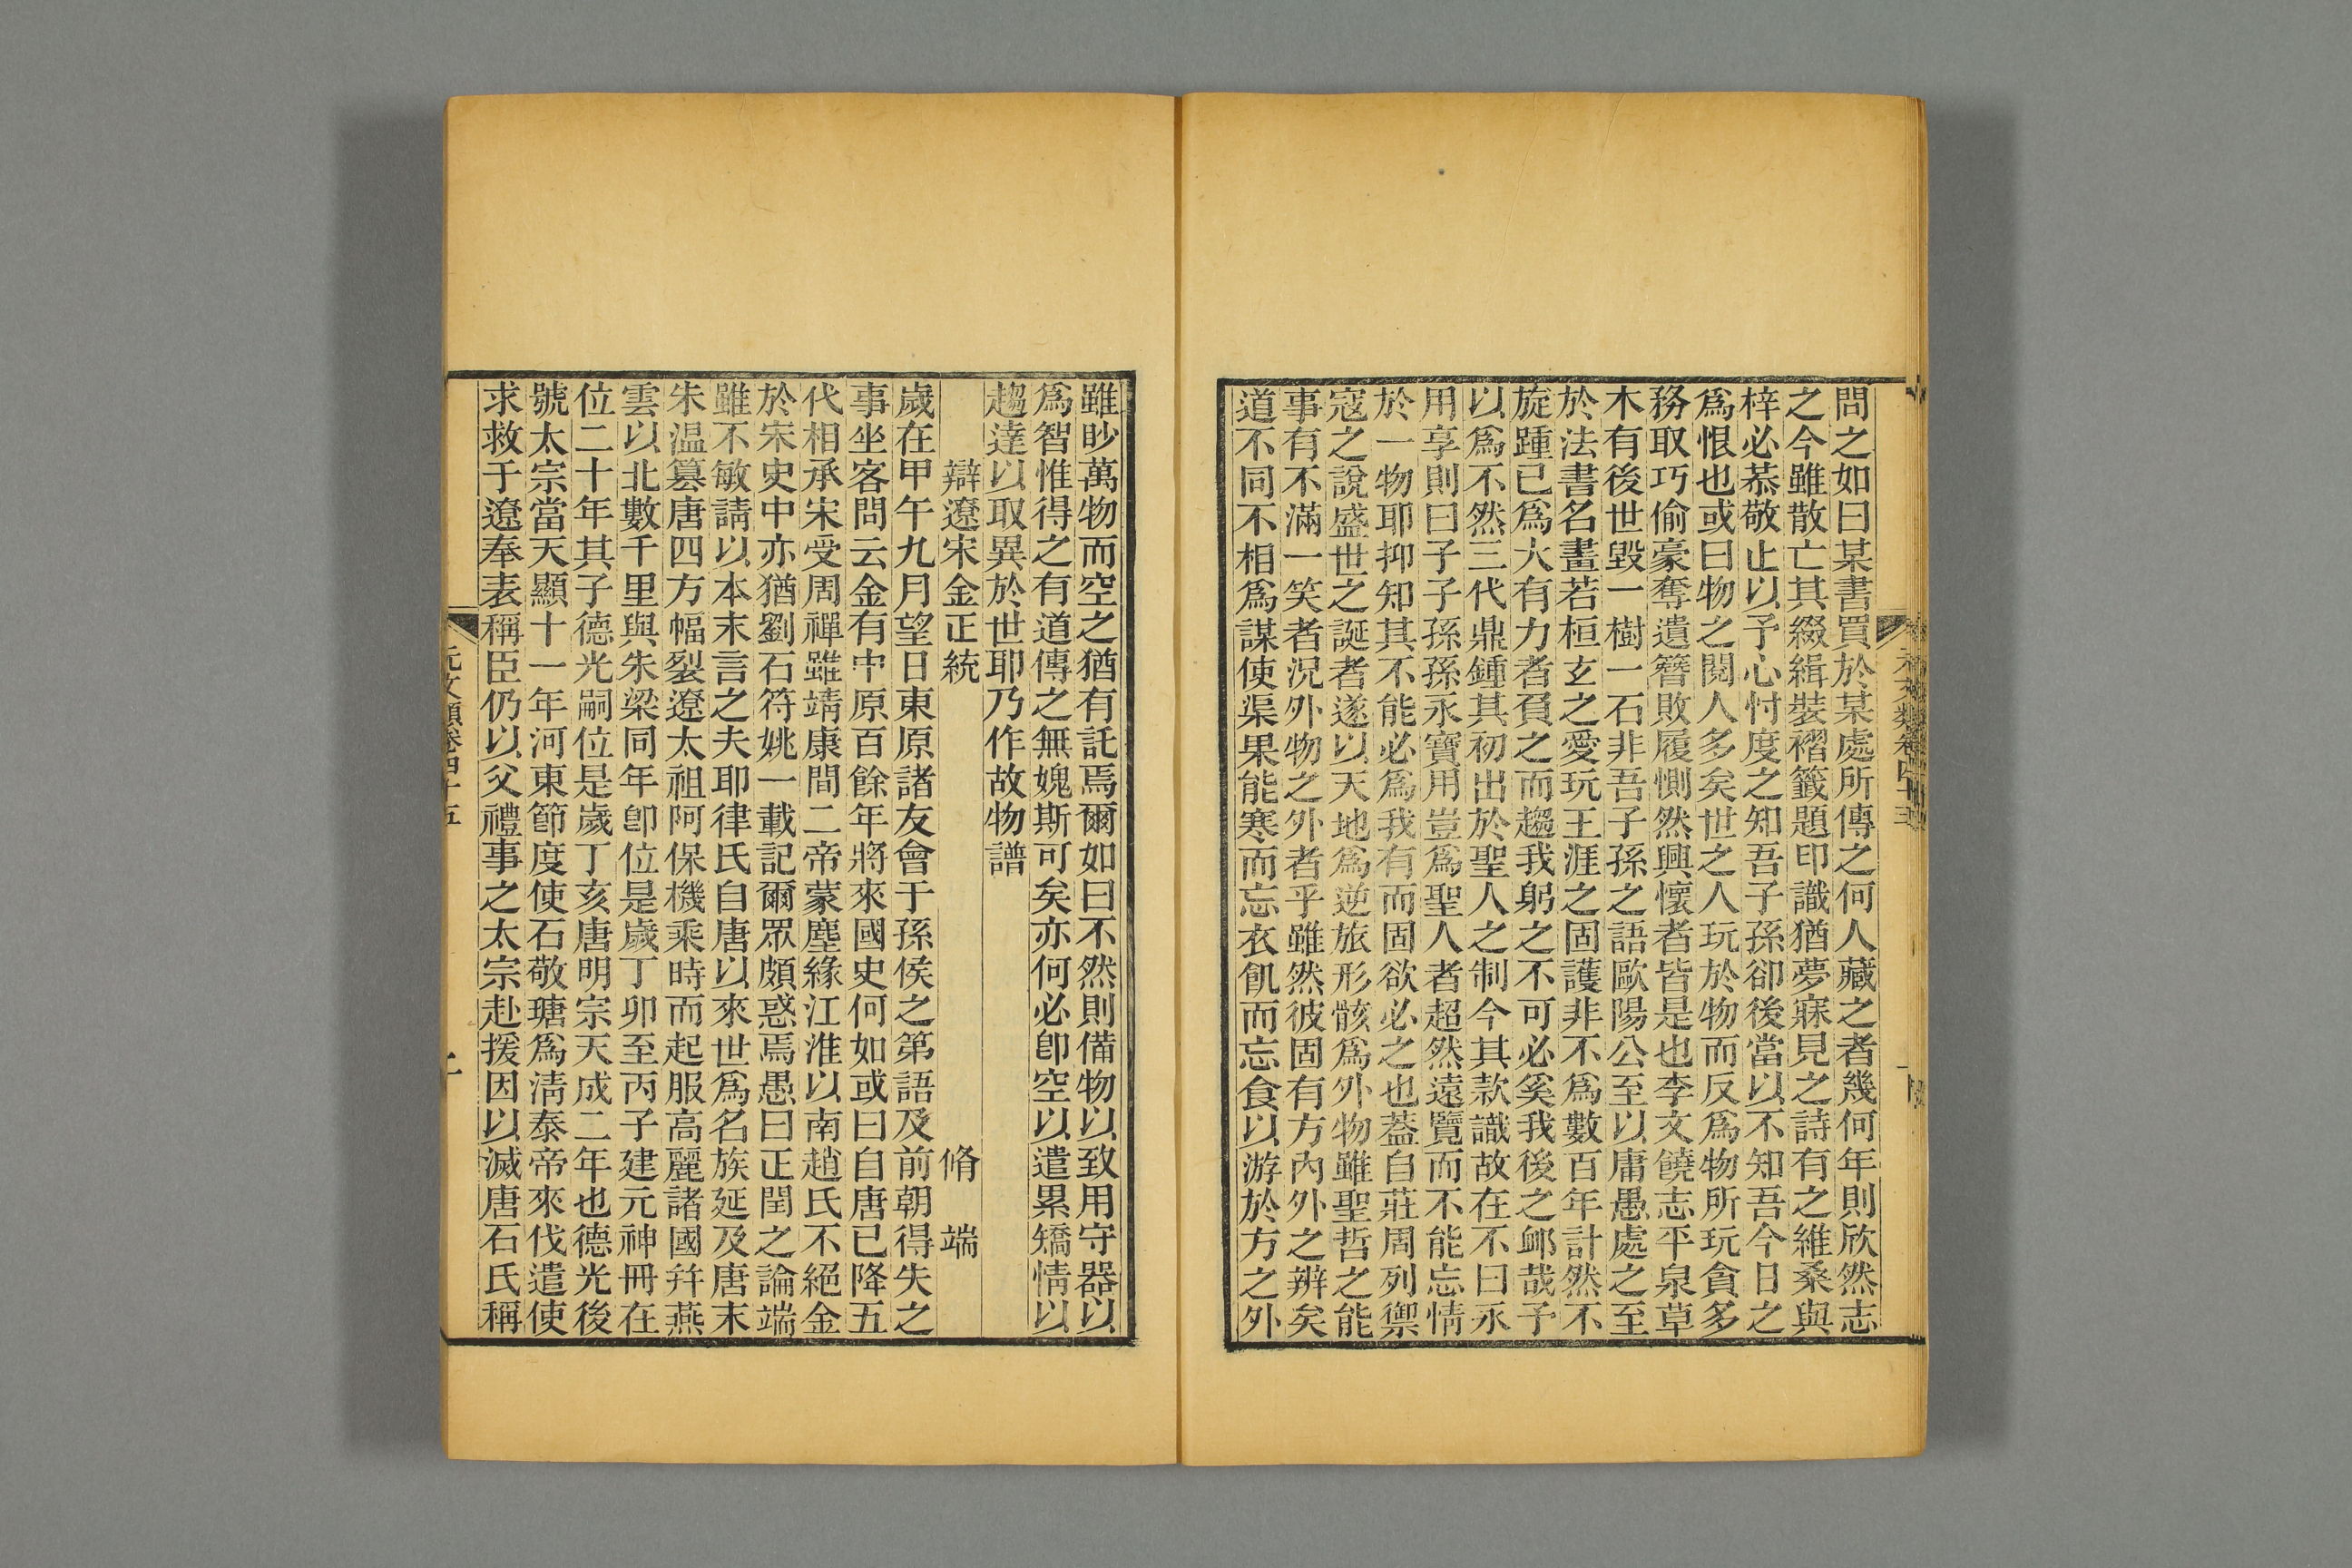 問之如曰某書買於某處所傳之何人藏之者幾何年則欣然志
之今雖散亡其綴緝裝褶籤題印識猶夢寐見之詩有之維桑與
梓必恭敬止以予心忖度之知吾子孫卻後當以不知吾今日之
爲恨也或曰物之閱人多矣世之人玩於物而反爲物所玩貪多
務取巧偷豪奪遺簪敗履惻然興懷者皆是也李文饒志平泉草
木有後世毀一樹一石非吾子孫之語歐陽公至以庸愚處之至
於法書名畫若桓玄之愛玩王涯之固護非不爲數百年計然不
旋踵已爲大有力者負之而趨我躬之不可必奚我後之卹哉予
以爲不然三代鼎鍾其初出於聖人之制今其款識故在不曰永
用享則曰子子孫孫永寶用豈爲聖人者超然遠覽而不能忘情
於一物耶抑知其不能必爲我有而固欲必之也蓋自莊周列禦
寇之說盛世之誕者遂以天地爲逆旅形骸爲外物雖聖哲之能
事有不滿一笑者況外物之外者乎雖然彼固有方內外之辨矣
道不同不相爲謀使渠果能寒而忘衣飢而忘食以游於方之外
雖眇萬物而空之猶有託焉爾如曰不然則備物以致用守器以
爲智惟得之有道傳之無媿斯可矣亦何必卽空以遣累矯情以
趨達以取異於世耶乃作故物譜
辯遼宋金正統 脩 端
歲在甲午九月望日東原諸友會于孫侯之第語及前朝得失之
事坐客問云金有中原百餘年將來國史何如或曰自唐已降五
代相承宋受周禪雖靖康間二帝蒙塵緣江淮以南趙氏不絕金
於宋史中亦猶劉石符姚一載記爾眾頗惑焉愚曰正閏之論端
雖不敏請以本末言之夫耶律氏自唐以來世爲名族延及唐末
朱温篡唐四方幅裂遼太祖阿保機乘時而起服高麗諸國幷燕
雲以北數千里與朱梁同年卽位是歲丁卯至丙子建元神冊在
位二十年其子德光嗣位是歲丁亥唐明宗天成二年也德光後
號太宗當天顯十一年河東節度使石敬瑭爲淸泰帝來伐遣使
求救于遼奉表稱臣仍以父禮事之太宗赴援因以滅唐石氏稱
元文類卷四十五